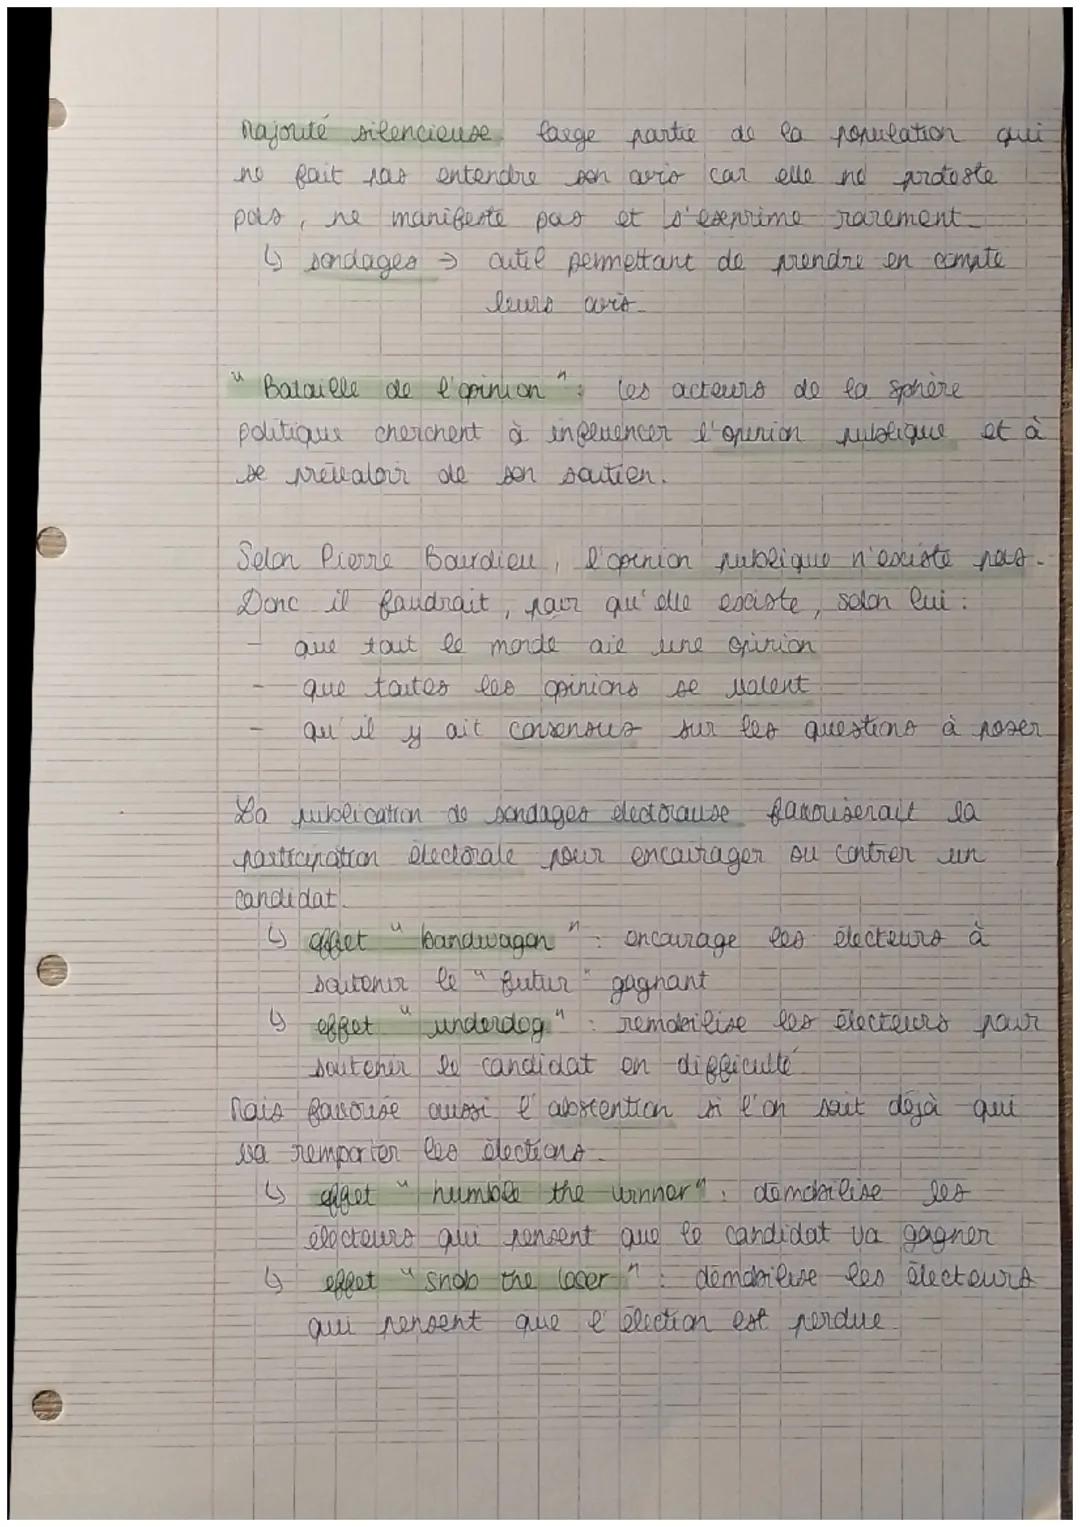 Majorité silencieuse large partie de la population qui
ne fait pas entendre son avis car elle ne proteste
pas, ne manifeste pas et s'exprime rarement.
↳ sondages → outil permettant de prendre en compte
leurs avis.
"Bataille de l'opinion": les acteurs de la sphère
politique cherchent à influencer l'opinion publique et à
se prévaloir de son soutien.
Selon Pierre Bourdieu, l'opinion publique n'existe pas.
Donc il faudrait, pour qu'elle existe, selon lui :
- que tout le monde aie une opinion
- que toutes les opinions se valent
- qu'il y ait consensus sur les questions à poser
La publication de sondages electoraux favoriserait la
participation électorale pour encourager ou contrer un
candidat.
↳ effet "bandwagon" : encourage les électeurs à
soutenir le "futur" gagnant
↳ effet "underdog" : remobilise les électeurs pour
soutenir le candidat en difficulté
Mais favorise aussi l'abstention si l'on sait déjà qui
va remporter les élections.
↳ effet "humble the winner" : démobilise les
électeurs qui pensent que le candidat va gagner
↳ effet "snob the loser" : démobilise les électeurs
qui pensent que l'élection est perdue.